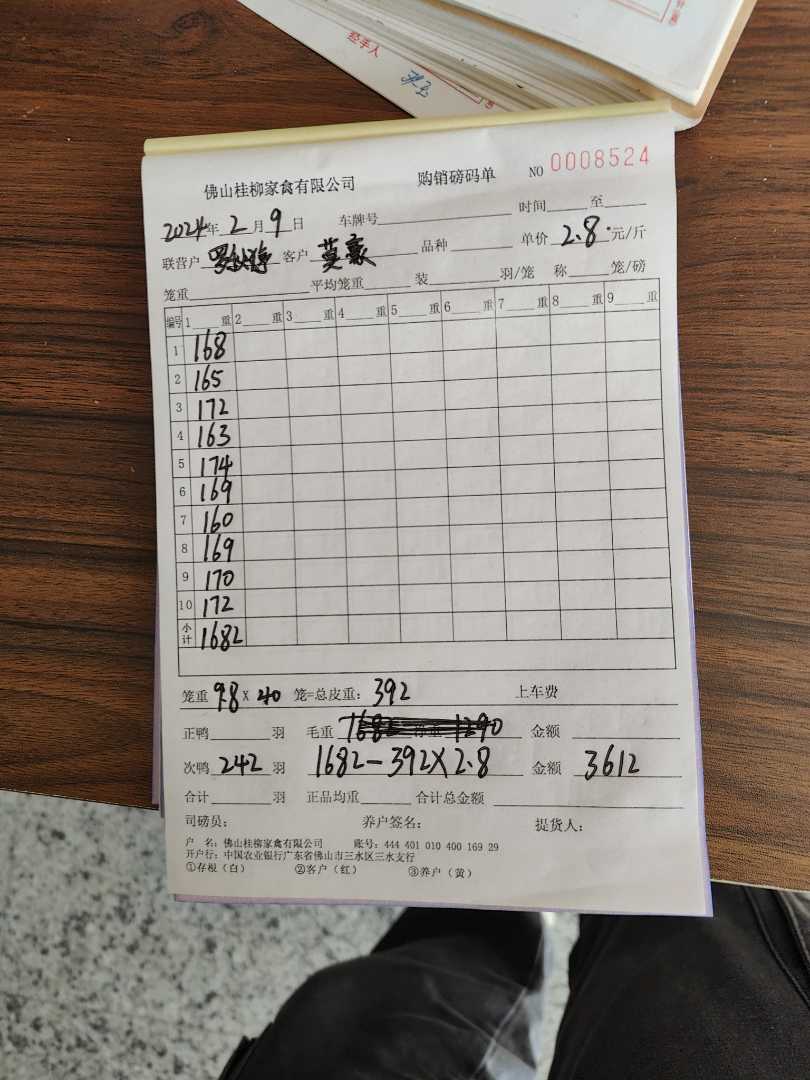 经手人
佛山桂柳家禽有限公司 购销磅码单 NO 0008524
2024年 2月 9日 车牌号 时间 至
联营户 客户 莫豪 品种 单价 2.8 元/斤
笼重 平均笼重 装 羽/笼 称 笼/磅
编号 1 重 2 重 3 重 4 重 5 重 6 重 7 重 8 重 9 重
1 168
2 165
3 172
4 163
5 174
6 169
7 160
8 169
9 170
10 172
小计 1682
笼重 9.8 X 40 笼=总皮重: 392 上车费
正鸭 羽 毛重 1682 净重 1290 金额
次鸭 242 羽 1682-392X2.8 金额 3612
合计 羽 正品均重 合计总金额
司磅员: 养户签名: 提货人:
户 名: 佛山桂柳家禽有限公司 账号: 444 401 010 400 169 29
开户行: 中国农业银行广东省佛山市三水区三水支行
①存根(白) ②客户(红) ③养户(黄)